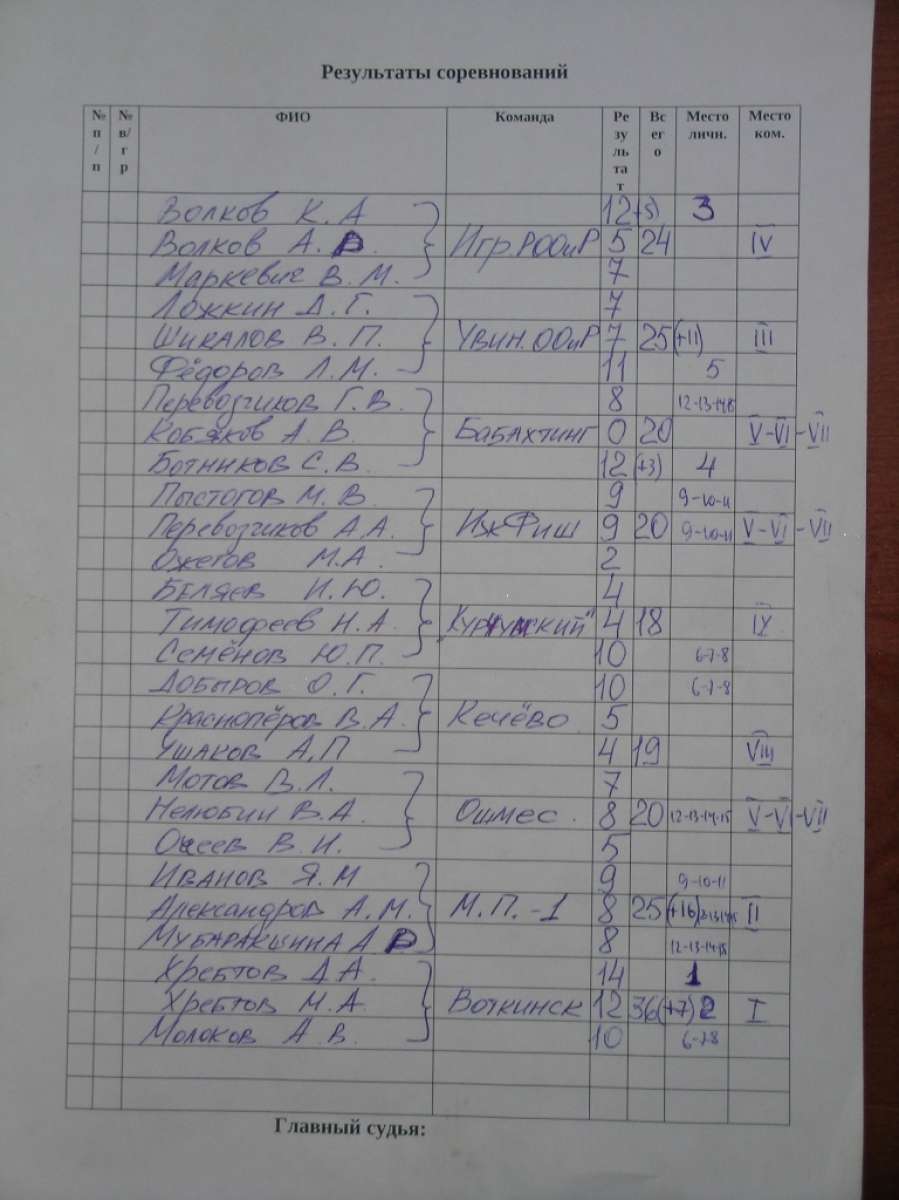 Результаты соревнований
№ п/п № в/гр ФИО Команда Результат Всего Место личн. Место ком.
Волков К. А 12 (+5) 3
Волков А. В. Игр.РООиР 5 24 IV
Маркевич В. М. 7
Ложкин Д. Г. 7
Шикалов В. П. Увин.ООиР 7 25 (+11) III
Фёдоров Л. М. 11 5
Перевозчиков Г. В. 8 12-13-14-15
Кобяков А. В. Бабахтинг 0 20 V-VI-VII
Ботников С. В. 12 (+3) 4
Пыстогов М. В 9 9-10-11
Перевозчиков А.А. ИжФиш 9 20 9-10-11 V-VI-VII
Ожегов М.А. 2
Беляев И. Ю. 4
Тимофеев Н. А 4 18 IX
Семёнов Ю. П. 10 6-7-8
Добыров О. Г. 10 6-7-8
Краснопёров В. А. Кечёво 5
Ушаков А.П 4 19 VIII
Мотов В. Л. 7
Нелюбин В.А. Ошмес. 8 20 12-13-14-15 V-VI-VII
В. И. 5
Иванов Я. М 9 9-10-11
Александров А. М. М.П.-1 8 25 (+16) 12-13-14-15 II
Мубаракшина А Р 8 12-13-14-15
Хребтов Д.А. 14 1
Хребтов М.А. Воткинск 12 36 (+7) 2 I
Молоков А. В. 10 6-7-8
Главный судья: